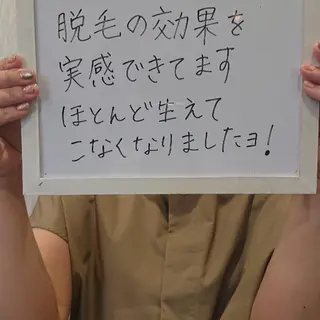 脱毛の効果を
実感できてます
ほとんど生えて
こなくなりましたヨ!